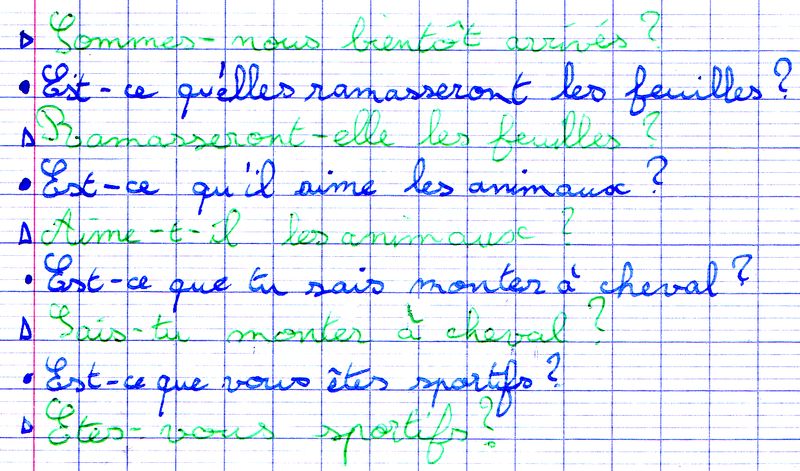 Sommes-nous bientôt arrivés ?
Est-ce qu'elles ramasseront les feuilles ?
Ramasseront-elle les feuilles ?
Est-ce qu'il aime les animaux ?
Aime-t-il les animaux ?
Est-ce que tu sais monter à cheval ?
Sais-tu monter à cheval ?
Est-ce que vous êtes sportifs ?
Etes-vous sportifs ?